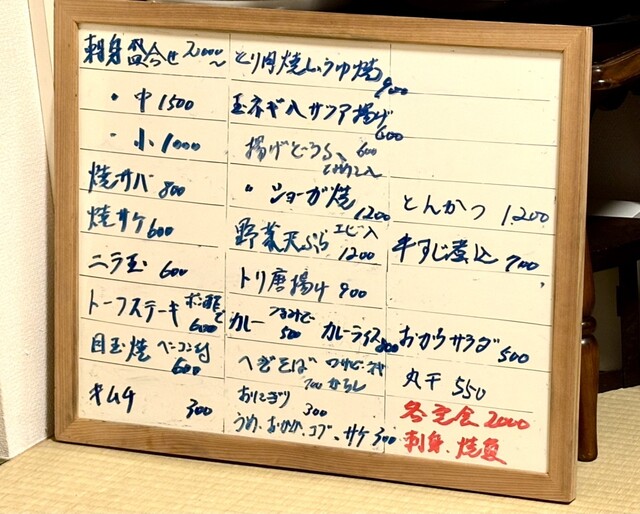 刺身盛合せ 2,000〜
・中 1500
・小 1000
焼サバ 800
焼サケ 600
ニラ玉 600
トーフステーキ ポン酢で 600
目玉焼 ベーコン付 600
キムチ 300
とり肉焼しょうゆ焼 900
玉ネギ入サツマ揚げ 600
揚げどうふ 600
〃 ショーガ焼 1200
野菜天ぷら エビ入 1200
トリ唐揚げ 900
カレー つまみで 500 カレーライス 800
へぎそば 700 からし
おにぎり 300
うめ、おかか、コブ、サケ 300
とんかつ 1,200
牛すじ煮込 700
おからサラダ 500
丸干 550
各定食 2000
刺身、焼魚